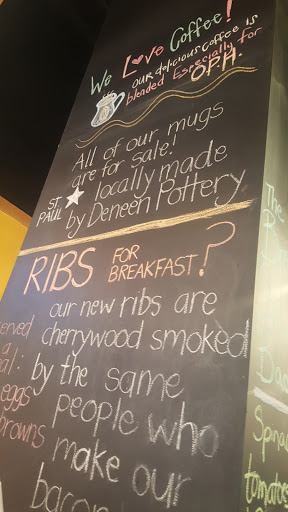 We Love Coffee!
our delicious coffee is
blended Especially for
O.P.H.
All of our mugs
are for sale!
ST. PAUL locally made
by Deneen Pottery
RIBS FOR BREAKFAST?
our new ribs are
cherrywood smoked
by the same
people who
make our
bacon
served
a
eggs
browns
The
Spina
tomatoes